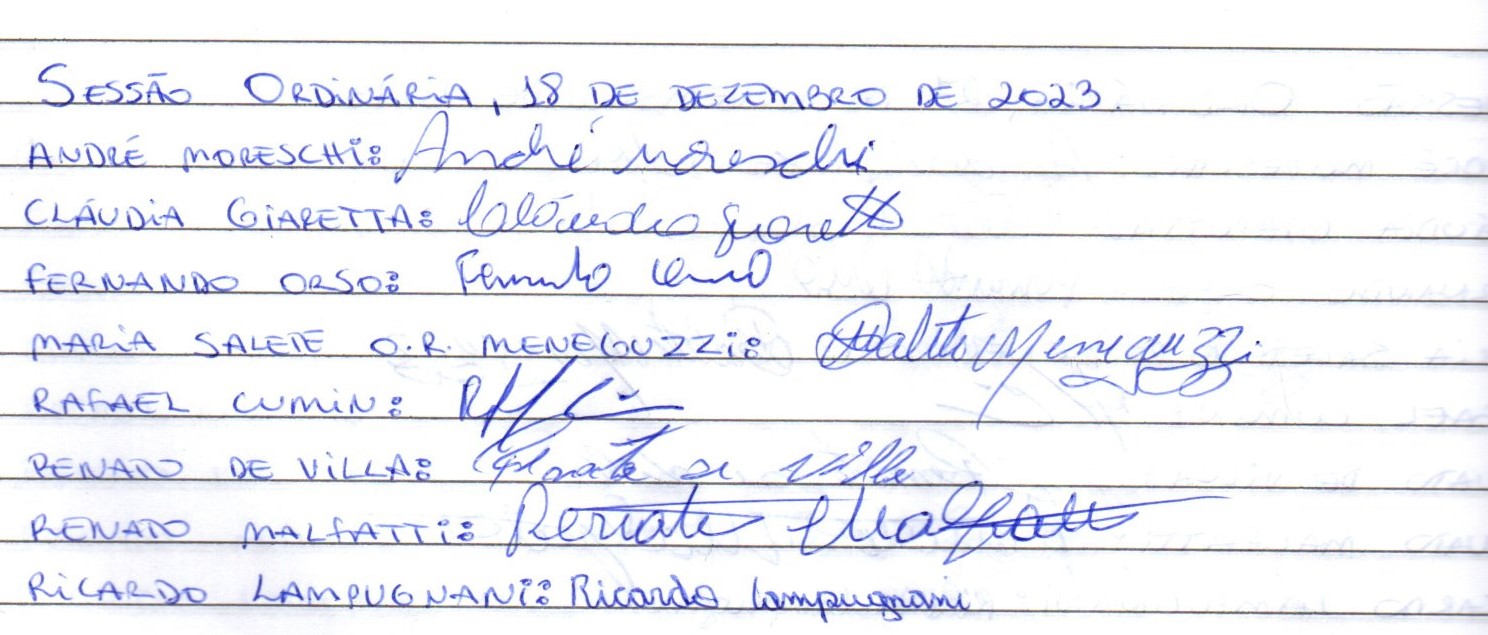 SESSÃO ORDINÁRIA, 18 DE DEZEMBRO DE 2023.
ANDRÉ MORESCHI: André Moreschi
CLÁUDIA GIARETTA: Cláudia Giaretta
FERNANDO ORSO: Fernando Orso
MARIA SALETE O.R. MENEGUZZI: Salete Meneguzzi
RAFAEL CUMIN:
RENATO DE VILLA: Renato de Villa
RENATO MALFATTI: Renato Malfatti
RICARDO LAMPUGNANI: Ricardo Lampugnani